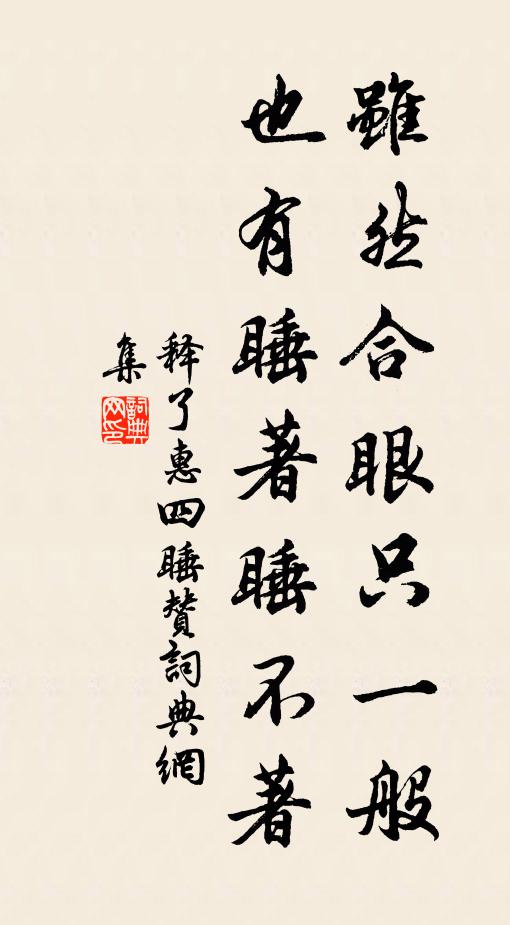 雖然合眼只一般
也有睡著睡不著
释了惠四睡賛詞典網
集
詞典
网印